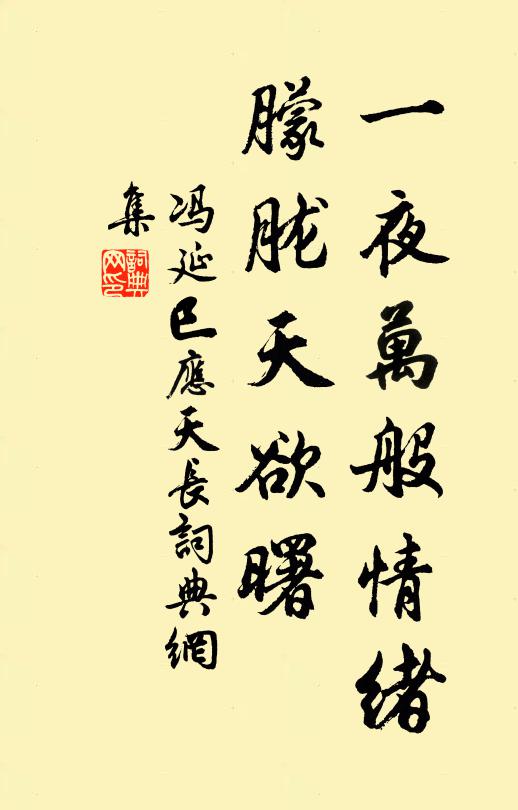 一夜萬般情緒
朦胧天欲曙
冯延巳應天長詞典網
集
詞典
网印